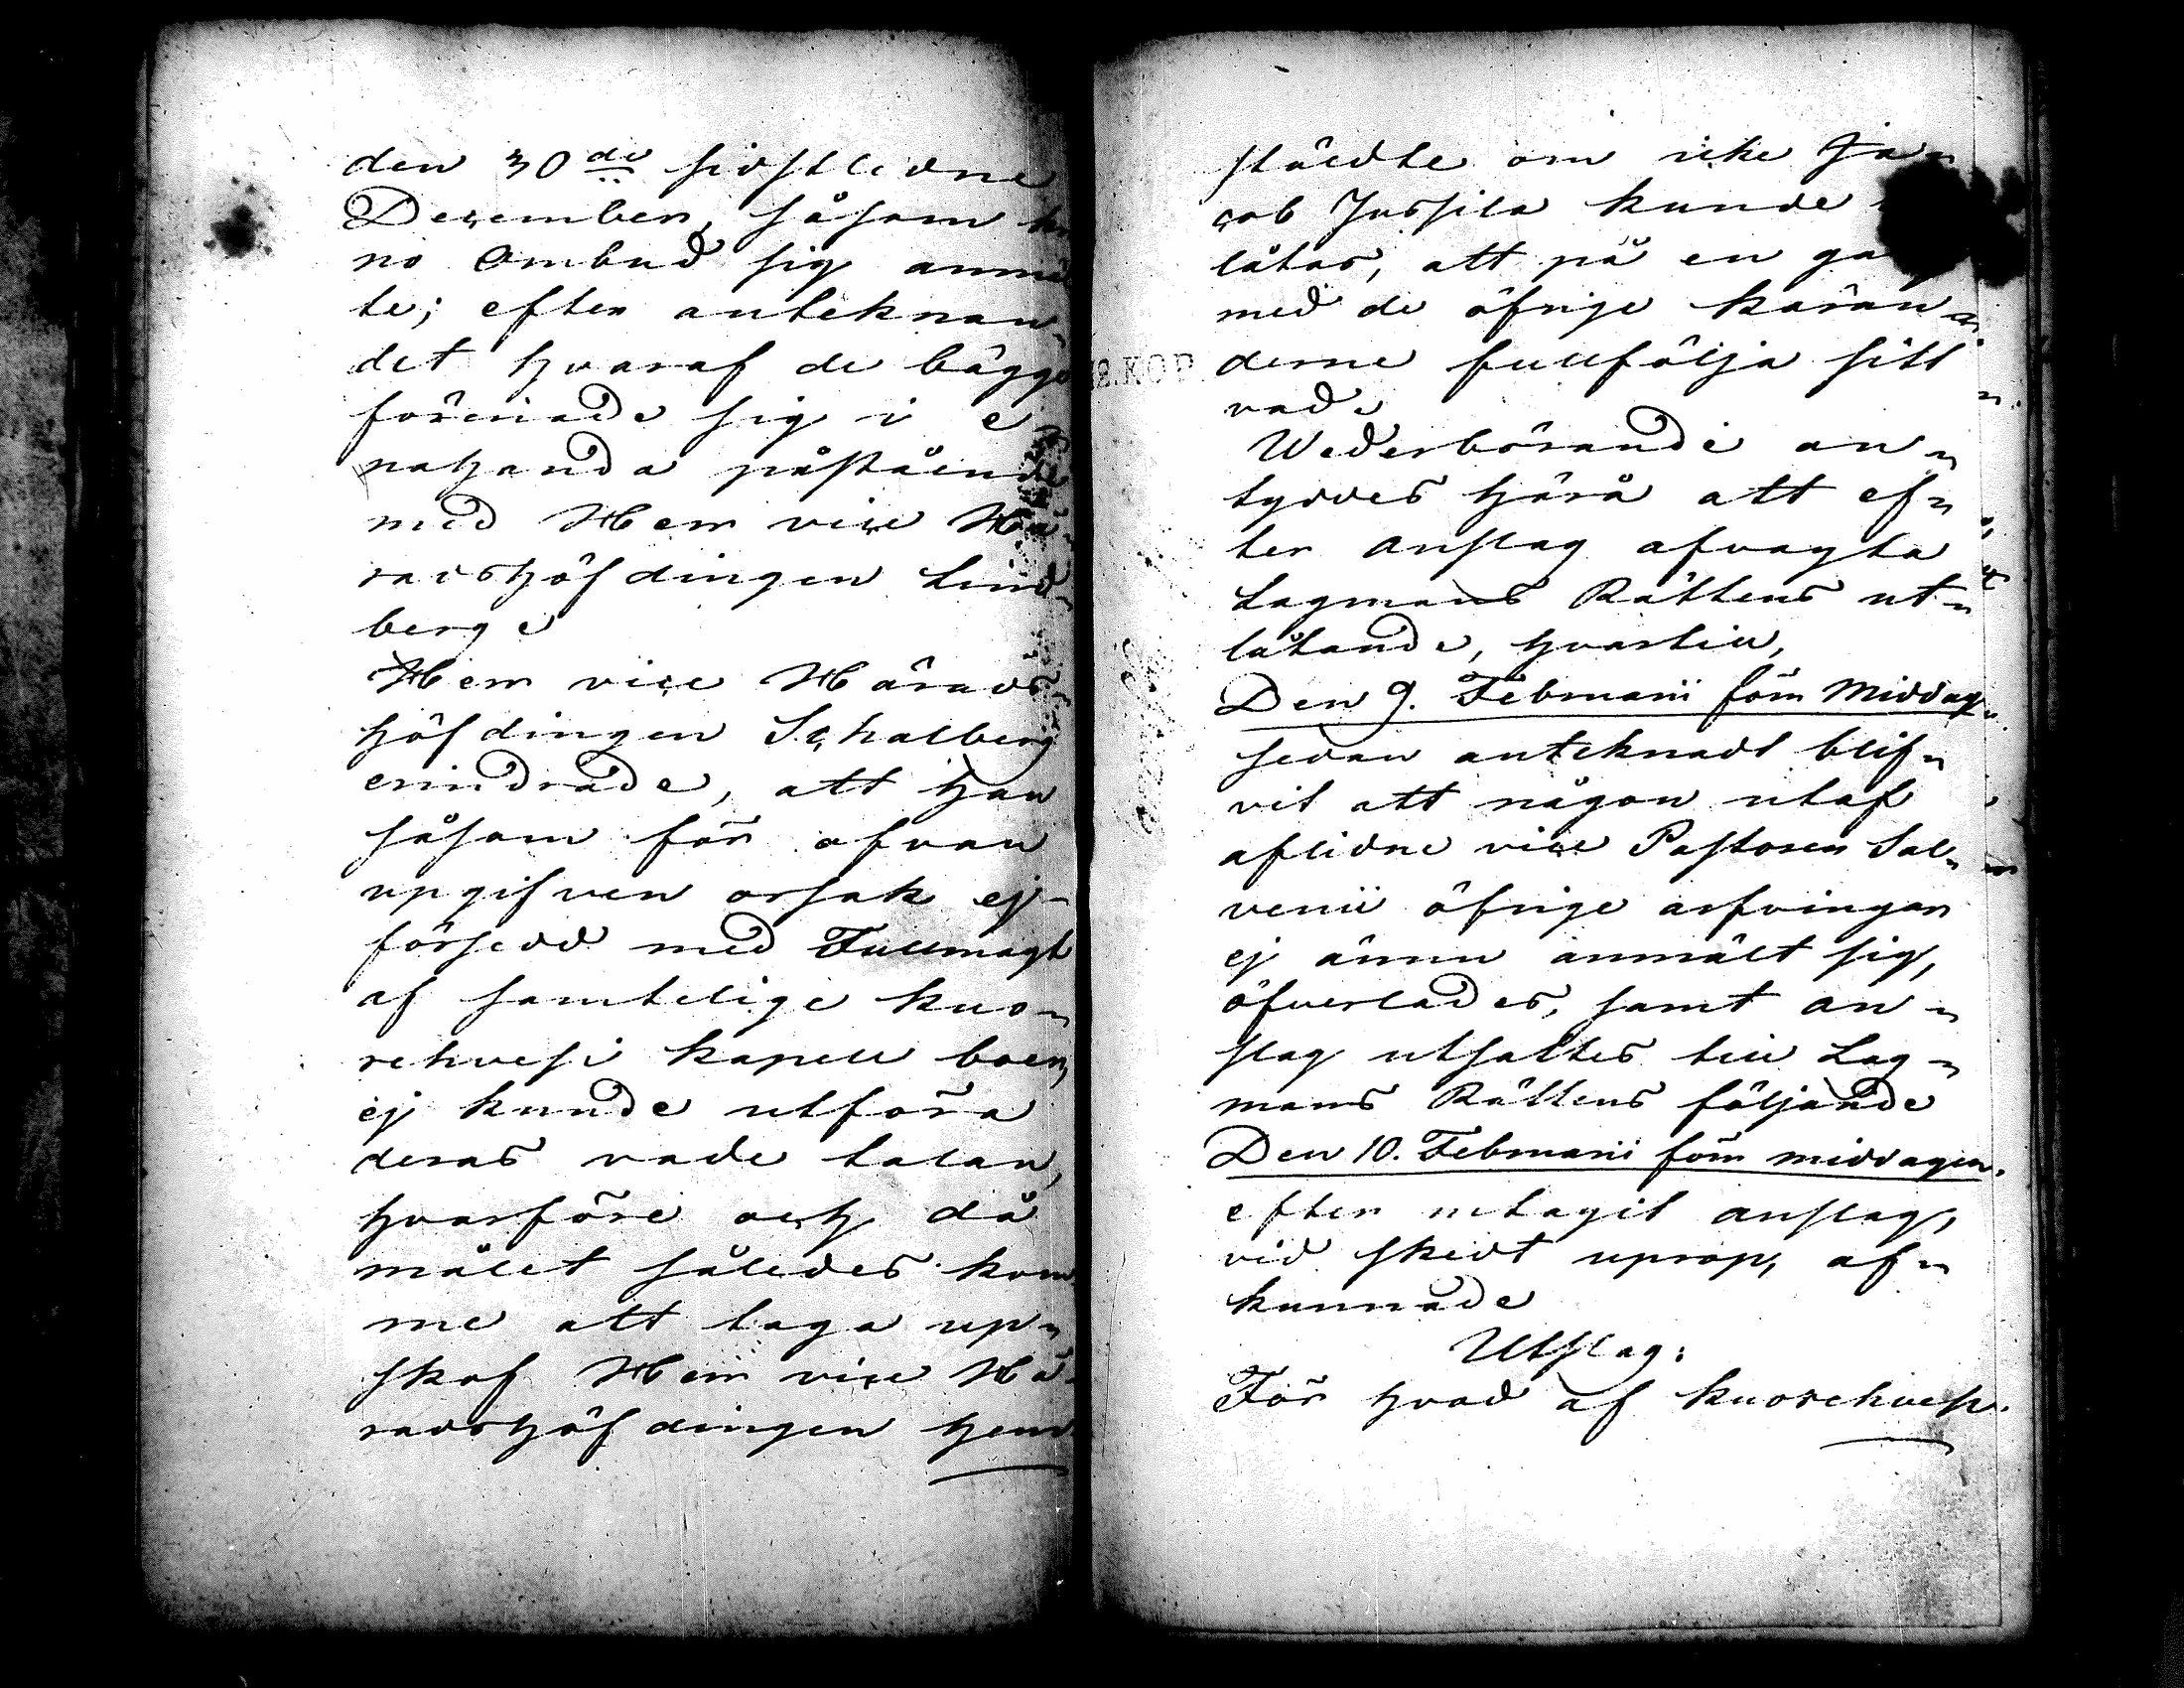 den 30de sidstledne
December, såsom
no Ombud sig anmä
te; efter anteknan¬
det hvaraf de bägge
förenade sig i e
nahanda påstående
med Herr vice Hä¬
radshöfdingen Lind¬
berg
Herr vice Härads¬
höfdingen Schalberg
erindrade, att han
såsom för ofvan
upgifven orsak ej
försedd med Fullmagt
af samtelige Kuo¬
rehvesi Kapell boer,
ej kunde utföra
deras vade talan,
hvarföre och då
målet således kom
me att taga up¬
skof Herr vice Hä¬
radshöfdingen hem
stälde om icke Ja¬
cob Jussila kunde
låtas, att på en gå
med de öfrige käran
derne fullfölja sitt
vad.
Wederbörande an¬
tyddes härå att ef¬
ter Anslag afvagta
Lagmans Rättens ut¬
låtande, hvartill,
Den 9. Februarii förm Middag
sedan anteknadt blif¬
vit att någon utaf
aflidne vice Pastoren Sal¬
venii öfrige arfvingar
ej ännu anmält sig,
öfverlades, samt an¬
slag utsattes till Lag¬
mans Rättens följande
Den 10. Februarii förm middagen.
efter uttagit anslag,
vid skedt uprop, af¬
kunnade
Utslag:
För hvad af Kuorehvesi